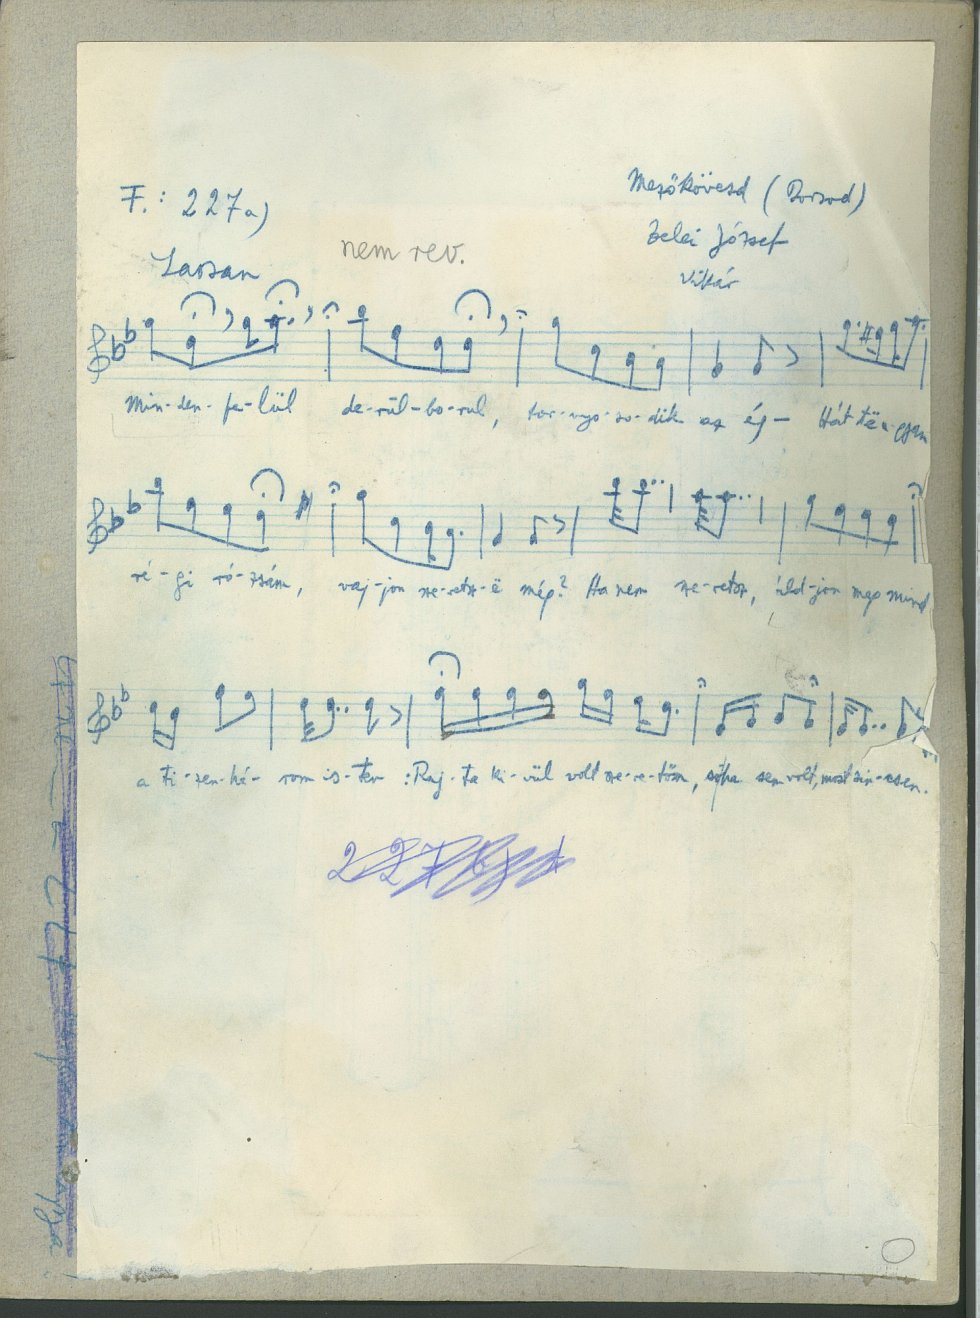 F.: 227a)
Mezőkövesd (Borsod)
Zelei József
Vikár
nem rev.
Lassan
Min-den-fe-lül de-rül-bo-rul, tor-nyo-so-dik az ég- Hát
ré-gi ró-zsám, vaj-jon sze-retsz-ë még? Ha nem sze-retsz, áld-jon meg mind
a ti-zen-há-rom is-ten :Raj-ta ki-vül volt sze-re-tőm, sem volt, most sin-csen.
227